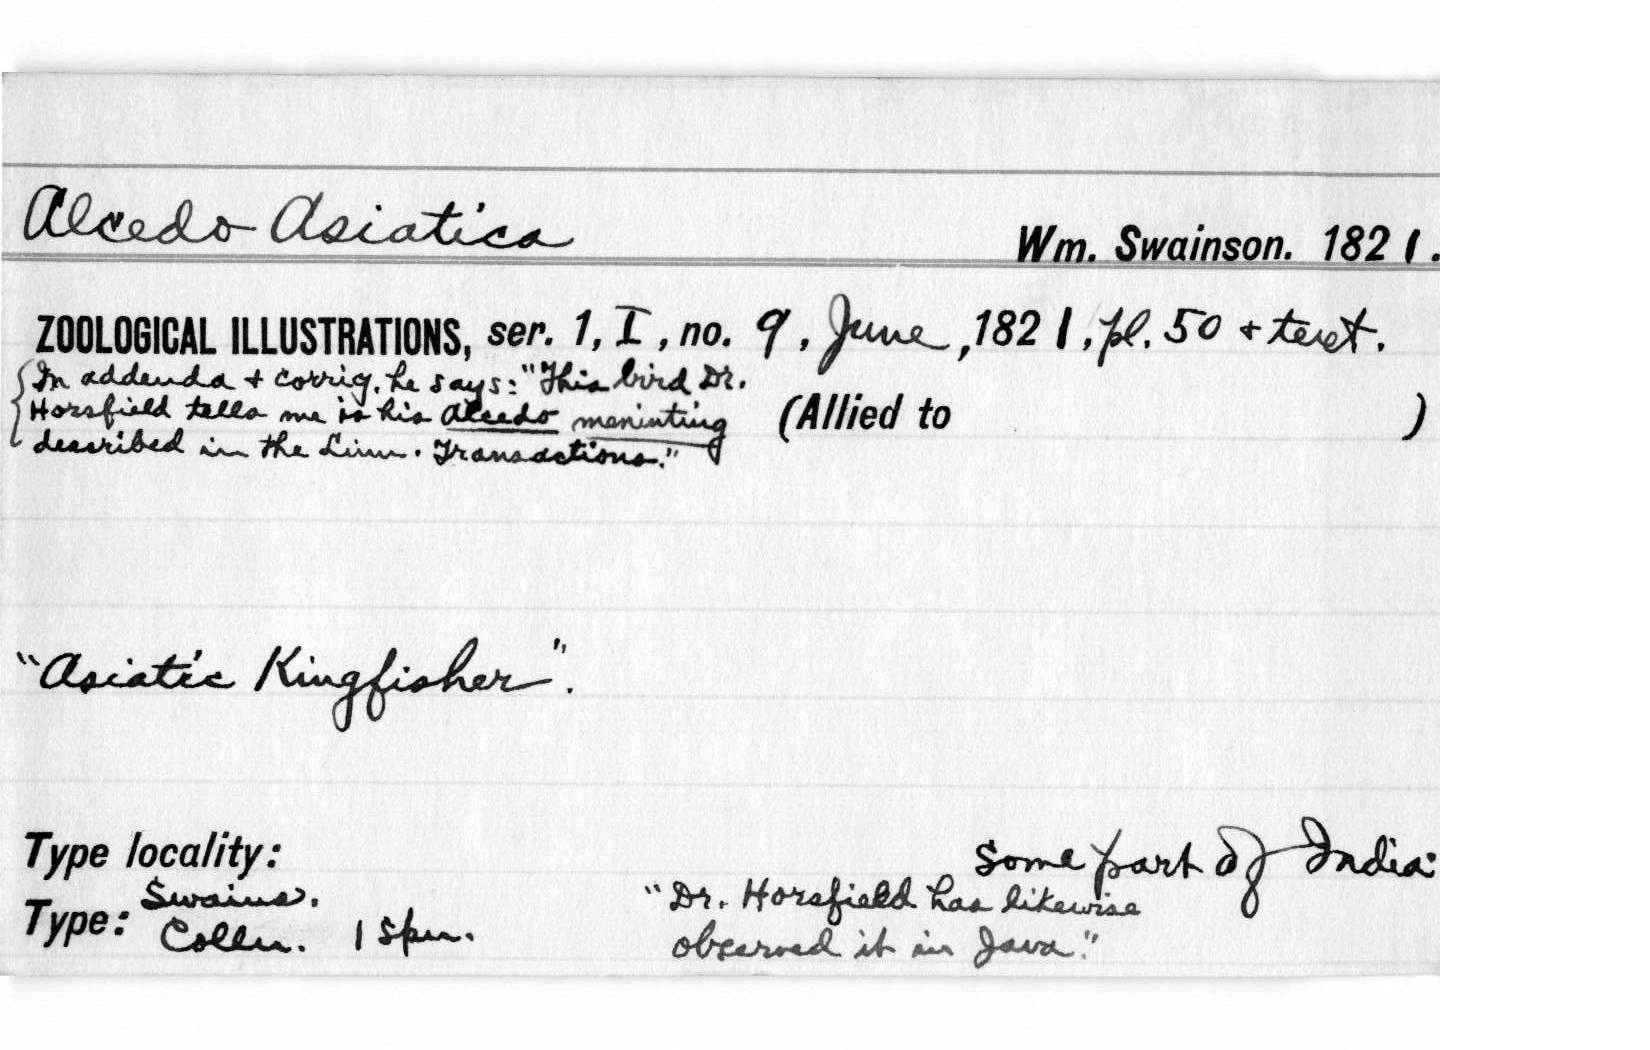 Alcedo Asiatica
Wm. Swainson. 1821.
ZOOLOGICAL ILLUSTRATIONS, ser. 1, I, no. 9, June, 1821, pl. 50 + text.
In addenda + corrig. he says: "This bird Dr.
Horsfield tells me is his Alcedo meninting
described in the Linn. Transactions."
(Allied to )
"Asiatic Kingfisher".
Type locality: Some part of India:
"Dr. Horsfield has likewise
observed it in Java."
Type: Swains.
Colln. 1 spn.